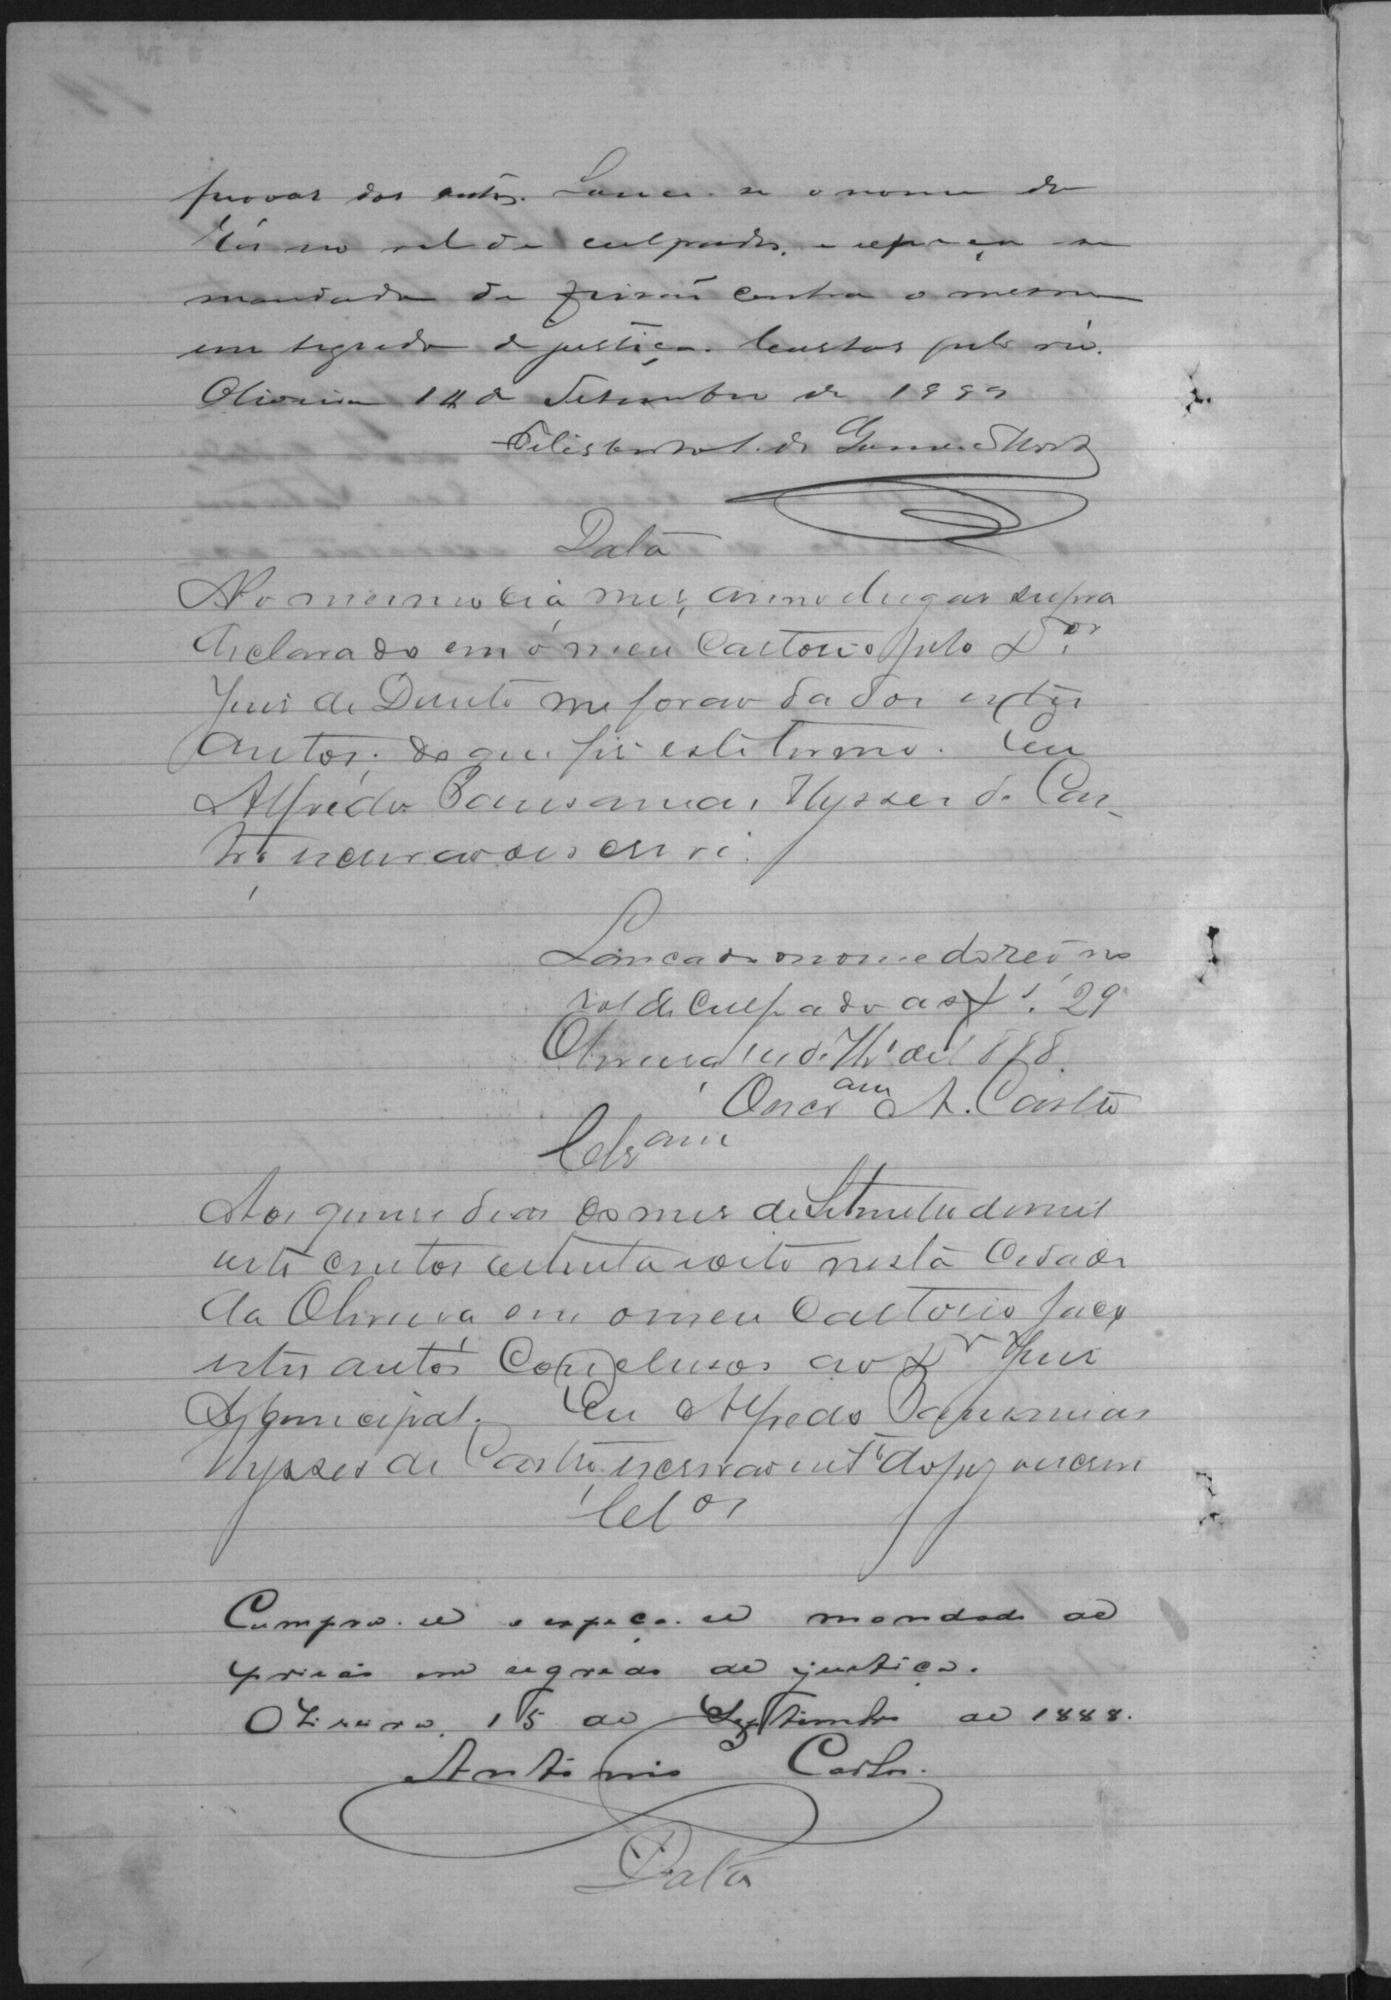 provas dos autos. Lance-se o nome do
Réo no rol de culpados, e expeça-se
mandado de prisão contra o mesmo
em segredo de justiça. Custas pelo réo.
Oliveira 14 de Setembro de 1888
de
Data
No mesmo dia, mes, anno elugar supra
declarado em o meu Cartorio pelo D.or
Juis de Direito me forão dados estes
autos; do que fis este termo. Eu
Alfredo Pausanias Ulysses de Cas-
tro, escrivão o escrevi.
Lançado o nome do reó no
rol de Culpado as fs. 29
Oliveira de 7br.o de 1888.
O A. Castro
Cls.am
Aos quinse dias do mes de Setembro de mil
oito centos oitenta e oito nesta Cidade
da Oliveira em o meu Cartorio faço
estes autos Conclusos ao D.r Juis
Municipal. Eu Alfredo Pausanias
Ulysses de Castro, escrivão o escrevi
Cel.os
Cumpra-se e expeça-se mandado de
prisão em segredo de justiça.
Oliveira, 15 de Septembro de 1888.
Antonio Carlos.
Data